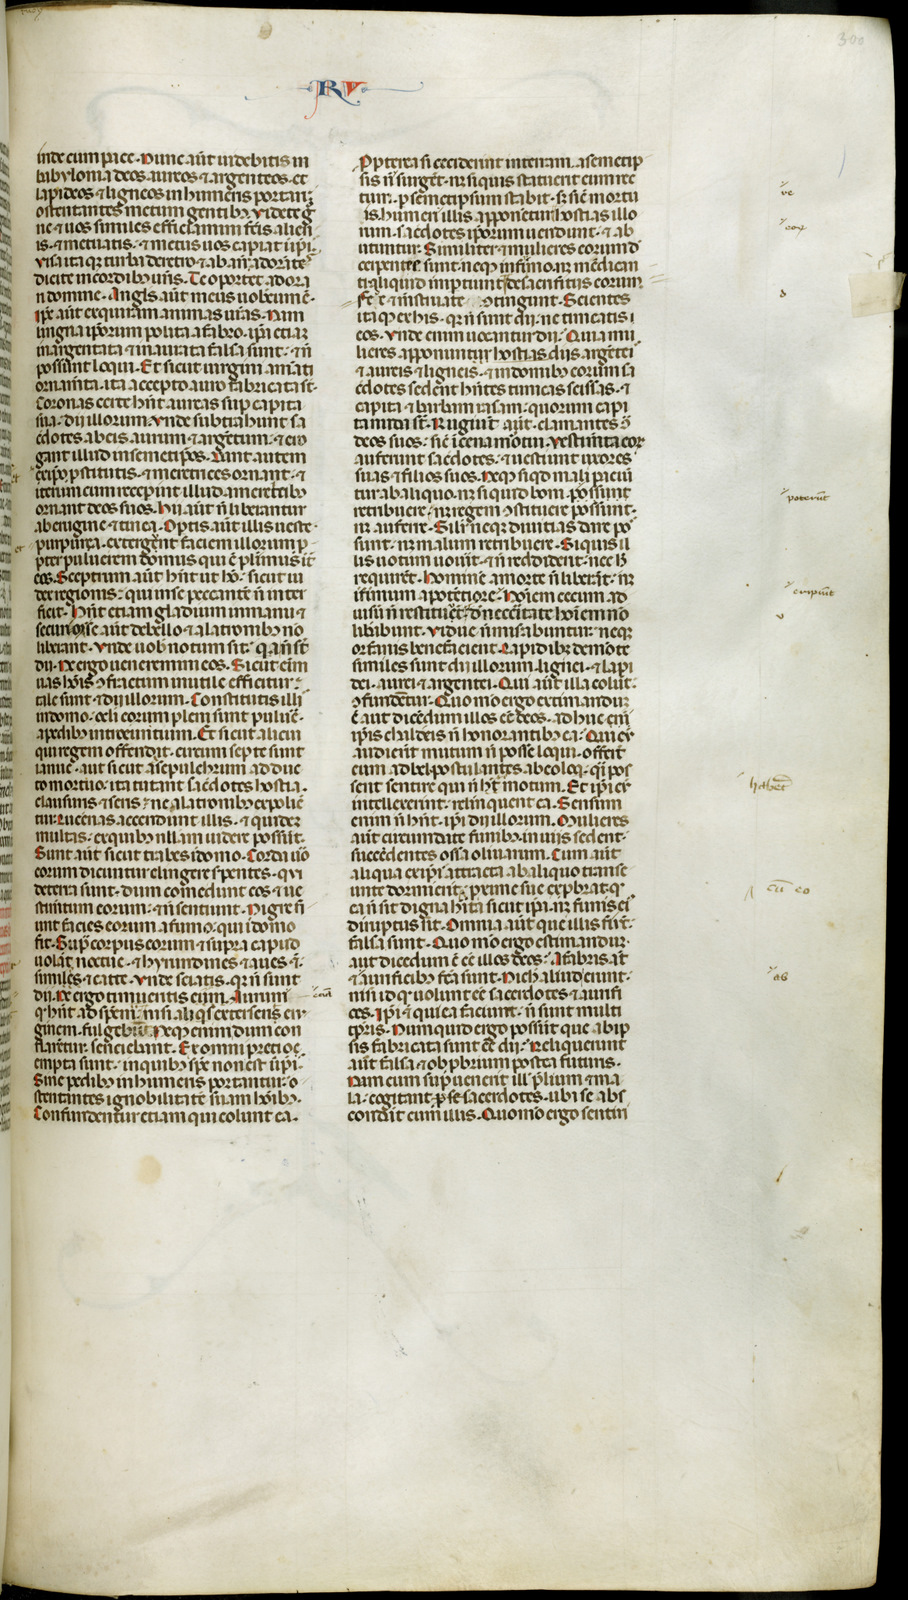 300
RV
inde cum pace. Nunc aūt uidebitis in
babylonia deos aureos & argenteos. et
lapideos & ligneos in humeris portari
ostentantes metum gentibʒ. Videte g̊
ne & uos similes efficiamini fc̄is alien
is. & metuatis. & metus uos capiat ī ip̄i.
Visa itaqʒ turba de retro & ab an̄. adorātes
dicite in cordibʒ ur̄is. Te oportet adora
ri domine. Angl̄s aūt meus uobc̄um ē.
Ip̄e aūt exquiram animas ur̄as. Nam
lingua ip̄orum polita a fabro. ip̄i etiaʒ
inargentata & inaurata falsa sunt. & n̄
possunt loqui. Et sicut uirgini amāti
ornam̄ta. ita accepto auro fabricata st̄.
Coronas certe hn̄t aureas sup̄ capita
sua. dii illorum. Vnde subtrahunt sa
c̄dotes ab eis aurum & argētum. & ero
gant illud in semetip̄os. Dant autem
ex ip̄o p̄stitutis. & meretrices ornant. &
iterum cum recep̄int illud a meret̄cibʒ
ornant deos suos. Hii aūt n̄ liberantur
ab erugine & tinea. Optis aūt illis ueste
purpurea. extergēnt faciem illorum p̄
pter puluerem domus qui ē plimus īt̄
eos. Sceptrum aūt hn̄t ut hō. sicut iu
dex regionis. qui in se peccantē n̄ inter
ficit. Hn̄t etiam gladium in manu &
securim. se aūt de bello & a latronibʒ nō
liberant. Vnde uob̄ notum sit. qa n̄ st̄
dii. Ne ergo ueneremini eos. Sicut eīm
uas hōis ɔfractum inutile efficitur.
tale sunt & dii illorum. Constitutis illi
in domo. oc̄li eorum pleni sunt puluē.
a pedibʒ introeuntium. Et sicut alicui
qui regem offendit. circum septe sunt
ianue. aut sicut ad sepulchrum adduc
to mortuo. ita tutant sac̄dotes hostia.
clausuris & seris. ne a latronibʒ expoliē
tur. Lucernas accendunt illis. & quidem
multas. ex quibʒ nllam uidere possūt.
Sunt aūt sicut trabes ī domo. Corda uō
eorum dicuntur elingere serpentes. qui
de terra sunt. dum comedunt eos & ue
stimentum eorum. & n̄ sentiunt. Nigre fi
unt facies eorum a fumo. qui ī domo
fit. Sup̄ corpus eorum & supra caput
uolāt noctue. & hyrundines & aues &
similes & catte. Vnde sciatis. qʒ n̄ sunt
dii. Ne ergo timueritis eum. Aurum
q̄ hn̄t ad spēm. nisi aliq̄s exterserit eru
ginem. fulgebunt. Neqʒ enim dum con
flarētur. senciebant. Ex omni precio
empta sunt. in quibʒ sp̄c non est ī ip̄i.
Sine pedibʒ in humeris portantur. o
stentantes ignobilitatē suam hōibʒ.
Confundentur etiam qui colunt ea.
Propterea si ceciderint in terram. a semetip̄
sis n̄ surgēt. nʒ si quis statuerit eum rec
tum. p̄ semetip̄sum stabit. sʒ sic̄ mortu
is humeri illis apponetur. Hostias illo
rum. sac̄dotes ip̄orum uendunt. & ab
utuntur. Similiter & mulieres eorum d
cerpentes sunt. neqʒ infirmo. nʒ mēdican
ti aliquid imp̄tiunt. de sacrificiis eorum
ita qʒ ex his. qʒ n̄ sunt dii. ne timeatis
eos. Vnde enim uocantur dii. Quia mu
lieres apponuntur hostias diis argētei
& aureis & ligneis. & in domibʒ eorum sa
c̄dotes sedent hn̄tes tunicas scissas. &
capita & barbam rasam. quorum capi
ta nuda st̄. Rugiūt aūt. clamantes ɔ̄
deos suos. sic̄ ī cena mortui. Vestimta eorʒ
auferunt sac̄dotes. & uestiunt uxores
suas & filios suos. Neqʒ si qd mali paciū
tur ab aliquo. nʒ si quid boni. possunt
retribuere. nʒ regem ɔstituere possunt.
nʒ auferre. Silr̄ neqʒ diuitias dare pos
sunt. nʒ malum retribuere. Si quis il
lis uotum uouit. & n̄ reddiderit. nec h̄
requirēt. Hominē a morte n̄ liberāt. nʒ
infirmum a potētiore. Hoīem cecum ad
uisū n̄ restituēt. d̄ necc̄itate hoīem nō
liberabunt. Vidue n̄ miserabuntur. neqʒ
orfanis benefacient. Lapidibʒ de monte
similes sunt dii illorum. lignei. & lapi
dei. aurei & argentei. Qui aūt illa colūt.
ɔfundentur. Quomō ergo extimanduʒ
ē aut dicēdum illos ēē deos. adhuc eni
ip̄is chaldeis n̄ honorantibʒ ea. Qui cū
audierit mutum n̄ posse loqui. offerūt
eum ad bel. postulantes ab eo loqi. q̄i pos
sent sentire qui n̄ hn̄t motum. Et ip̄i cū
intellexerint. relinquent ea. Sensum
enim n̄ hn̄t. ip̄i dii illorum. Mulieres
aūt circumdate funibʒ. in uiis sedent.
succēdentes ossa oliuarum. Cum aūt
aliqua ex ip̄i attracta ab aliquo transe
unte dormierit. p̄xime sue exp̄brat. qʒ
ea n̄ sit digna hīta sicut ip̄a. nʒ funis ei
diruptus sit. Omnia aūt que illis fiūt.
falsa sunt. Quomō ergo estimanduʒ.
aut dicēdum ē ēē illos deos. A fabris aūt
& aurificibʒ fc̄a sunt. Nichil aliud erunt.
nisi id qʒ uolunt ēē sacerdotes & aurifi
ces. Ip̄i & qui ea faciunt. n̄ sunt multi
tp̄ris. Numquid ergo possūt que ab ip̄
sis fabricata sunt ēē dii. Reliquerunt
aūt falsa & obprbrium postea futuris.
Nam cum sup̄uenerit ill̄ p̄lium & ma
la. cogitant p̄ se sacerdotes. ubi se abs
condāt cum illis. Quomō ergo sentiri
ue
eoʒ
poterūt
eripiūt
habēt
cū eo
ab